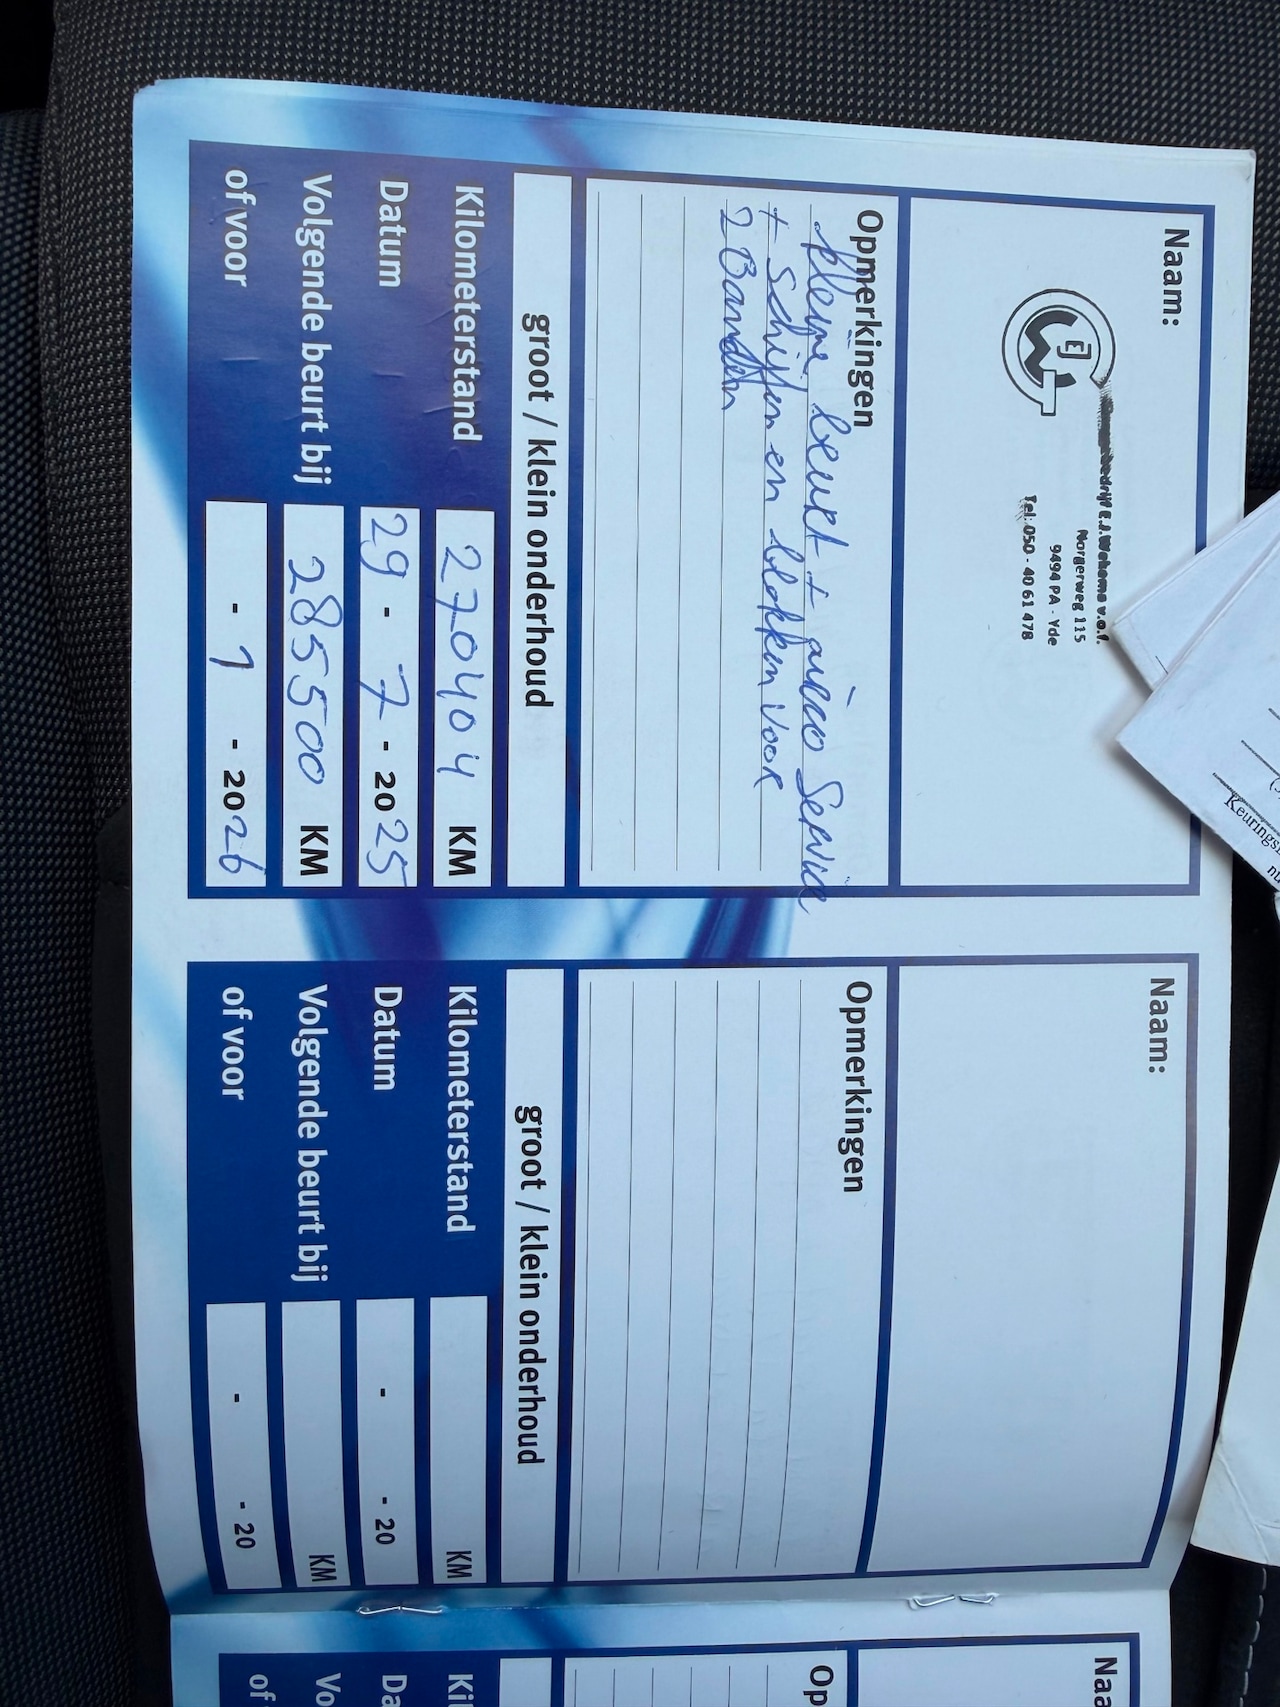 Naam:
E.J. Wekema v.o.f.
Norgerweg 115
9494 PA - Yde
Tel: 050 - 40 61 478
Opmerkingen
kleine beurt + airco Service
+ schijfen en blokken voor
2 Banden
groot / klein onderhoud
Kilometerstand 270404 KM
Datum 29 - 7 - 2025
Volgende beurt bij 285500 KM
of voor - 7 - 2026
Naam:
Opmerkingen
groot / klein onderhoud
Kilometerstand KM
Datum - - 20
Volgende beurt bij KM
of voor - - 20
Na
Op
Kil
Da
Vo
of
Keurings